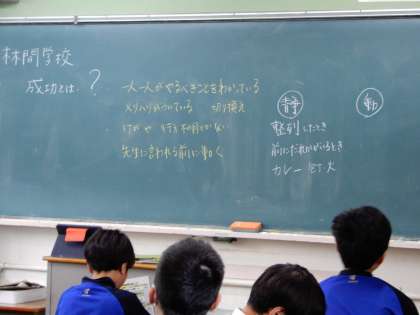 林間学校
成功とは?
一人一人がやるべきことをわかっている
メリハリがついている 切り換え
けがや行方不明がない
先生に言われる前に動く
静
整列したとき
前にだれかがいるとき
カレー 灯火
動